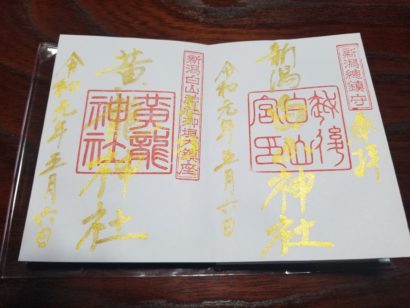 新潟總鎮守
奉拝
新潟白山神社
越後
白山
宮印
令和元年五月六日
新潟白山
鎮座
黄龍神社
黄龍
神社
令和元年五月六日